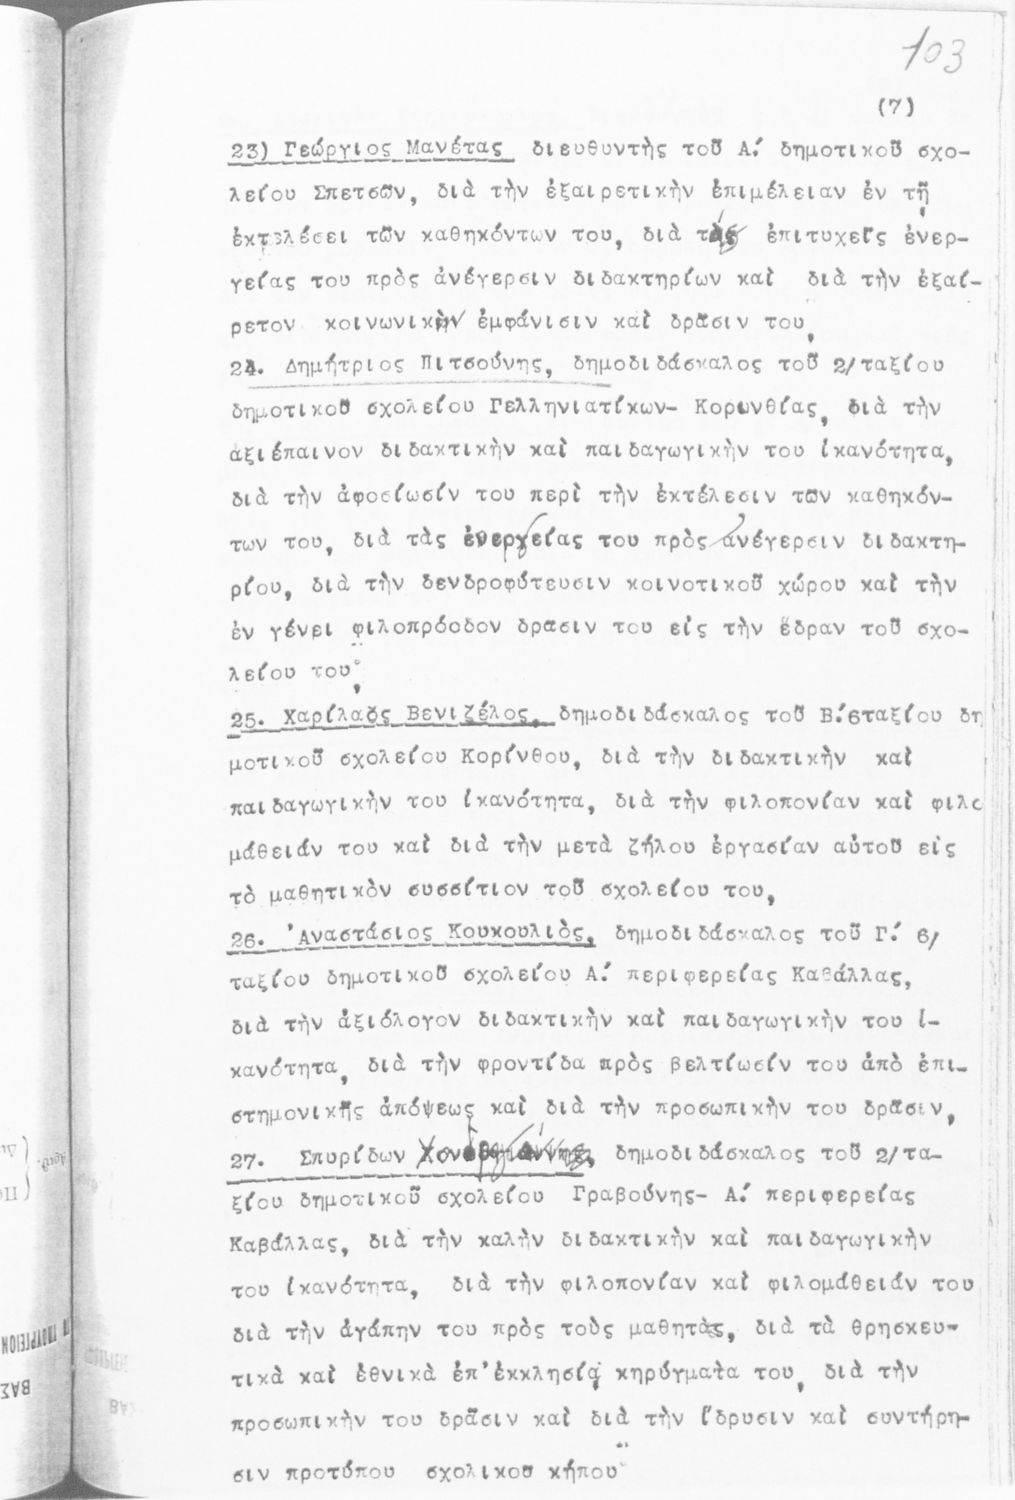 103
(7)
23) Γεώργιος Μανέτας διευθυντὴς τοῦ Α.΄ δημοτικοῦ σχο-
λείου Σπετσῶν, διὰ τὴν ἐξαιρετικὴν ἐπιμέλειαν ἐν τῇ
ἐκτελέσει τῶν καθηκόντων του, διὰ τὰς ἐπιτυχεῖς ἐνερ-
γείας του πρὸς ἀνέγερσιν διδακτηρίων καὶ διὰ τὴν ἐξαί-
ρετον κοινωνικὴν ἐμφάνισιν καὶ δρᾶσιν του,
24. Δημήτριος Πιτσούνης, δημοδιδάσκαλος τοῦ 2/ταξίου
δημοτικοῦ σχολείου Γελληνιατίκων- Κορινθίας, διὰ τὴν
ἀξιέπαινον διδακτικὴν καὶ παιδαγωγικὴν του ἱκανότητα,
διὰ τὴν ἀφοσίωσίν του περὶ τὴν ἐκτέλεσιν τῶν καθηκόν-
των του, διὰ τὰς ἐνεργείας του πρὸς ἀνέγερσιν διδακτη-
ρίου, διὰ τὴν δενδροφύτευσιν κοινοτικοῦ χώρου καὶ τὴν
ἐν γένει φιλοπρόοδον δρασιν του εἰς τὴν ἕδραν τοῦ σχο-
λείου του,
25. Χαρίλαος Βενιζέλος, δημοδιδάσκαλος τοῦ Β.΄6ταξίου δη
μοτικοῦ σχολείου Κορίνθου, διὰ τὴν διδακτικὴν καὶ
παιδαγωγικὴν του ἱκανότητα, διὰ τὴν φιλοπονίαν καὶ φιλο
μάθειάν του καὶ διὰ τὴν μετὰ ζήλου ἐργασίαν αὐτοῦ εἰς
τὸ μαθητικὸν συσσίτιον τοῦ σχολείου του,
26. Ἀναστάσιος Κουκουλιὸς, δημοδιδάσκαλος τοῦ Γ.΄ 6/
ταξίου δημοτικοῦ σχολείου Α.΄ περιφερείας Καβάλλας,
διὰ τὴν ἀξιόλογον διδακτικὴν καὶ παιδαγωγικὴν του ἱ-
κανότητα, διὰ τὴν φροντίδα πρὸς βελτίωσίν του ἀπὸ ἐπι-
στημονικῆς ἀπόψεως καὶ διὰ τὴν προσωπικὴν του δρᾶσιν,
27. Σπυρίδων δημοδιδάσκαλος τοῦ 2/τα-
ξίου δημοτικοῦ σχολείου Γραβούνης- Α.΄ περιφερείας
Καβάλλας, διὰ τὴν καλὴν διδακτικὴν καὶ παιδαγωγικὴν
του ἱκανότητα, διὰ τὴν φιλοπονίαν καὶ φιλομάθειάν του
διὰ τὴν ἀγάπην του πρὸς τοὺς μαθητὰς, διὰ τὰ θρησκευ-
τικὰ καὶ ἐθνικὰ ἐπ' ἐκκλησίᾳ κηρύγματα του, διὰ τὴν
προσωπικὴν του δρᾶσιν καὶ διὰ τὴν ἵδρυσιν καὶ συντήρη-
σιν προτύπου σχολικου κήπου